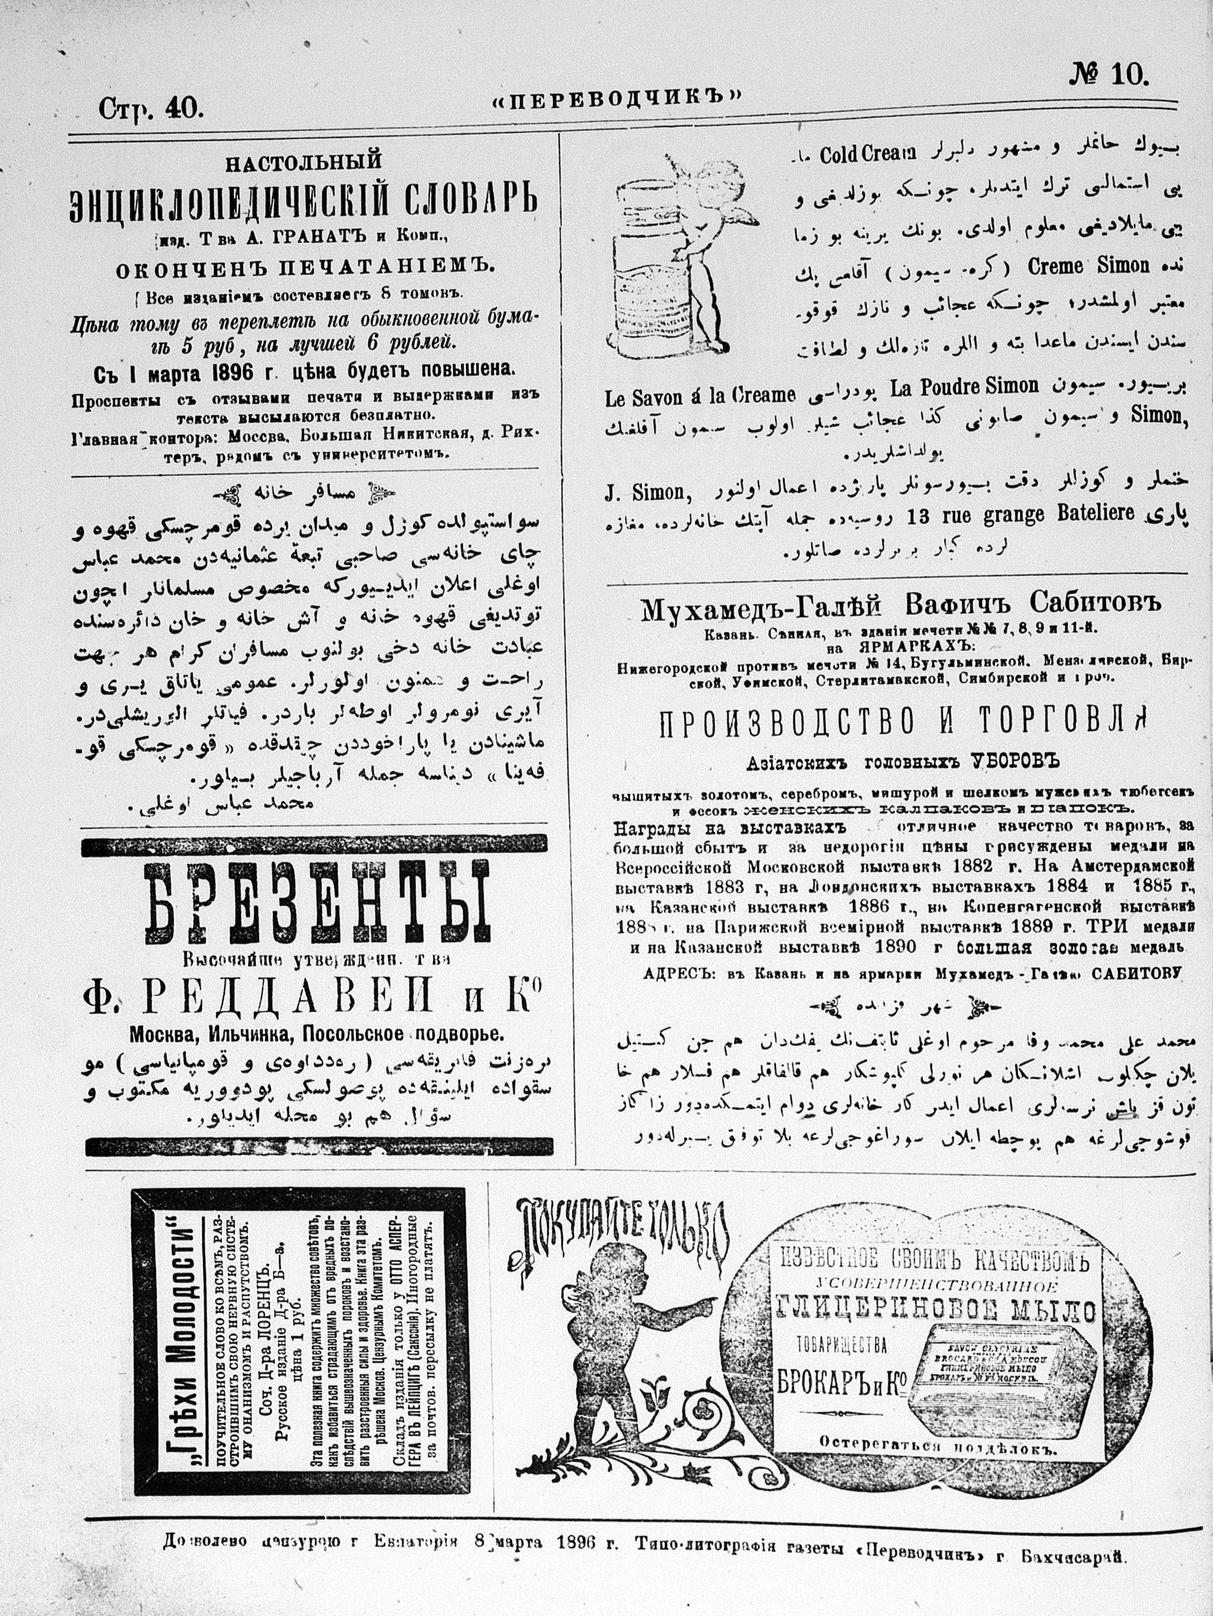 Стр. 40.
«ПЕРЕВОДЧИКЪ»
№ 10.
НАСТОЛЬНЫЙ
ЭНЦИКЛОПЕДИЧЕСКІЙ СЛОВАРЬ
изд. Т ва А. ГРАНАТЪ и Комп.,
ОКОНЧЕНЪ ПЕЧАТАНІЕМЪ.
Все изданіемъ составляетъ 8 томовъ.
Цѣна тому въ переплетѣ на обыкновенной бума-
гѣ 5 руб, на лучшей 6 рублей.
Съ 1 марта 1896 г. цѣна будетъ повышена.
Проспекты съ отзывами печати и выдержками изъ
текста высылаются безплатно.
Главная контора: Москва, Большая Никитская, д. Рих-
теръ, рядомъ съ университетомъ.
مسافر خانه
سواستپولده كوزل و ميدان يرده قومرچسكى قهوه و
چاى خانه‌سى صاحبى تبعهٔ عثمانيه‌دن محمد عباس
اوغلى اعلان ايديـيوركه مخصوص مسلمانلر ايچون
توتديغى قهوه خانه و آش خانه و خان دائره‌سنده
عبادت خانه دخى بولنوب مسافران كرام هر جهت
راحت و ممنون اولورلر. عمومى ياتاق يـرى و
آيرى نومرولر اوطه‌لر باردر. فياتلر الويريشلى‌در.
ماشينادن يا پاراخوددن چيقدقده «قومرچسكى قو-
فه‌ينا» ديناسه جمله آرباجيلر بـيلور.
محمد عباس اوغلى.
БРЕЗЕНТЫ
Высочайше утвержден. т ва
Ф. РЕДДАВЕЙ и Ко
Москва, Ильчинка, Посольское подворье.
برەزنت فابريقه‌سى (رەدداوەى و قومپانياسى) مو
سقواده ايلينقه‌ده پوصولسكى پودووريه مكتوب و
سؤال هم بو محله ايديلور.
بـيوك خانملر و مشهور دلبرلر Cold Cream ما-
يى استمالنى ترك ايتديلر. چونـكه يوزلديغى و
يـى مايلاديغى معلوم اولدى. بونك يرينه بو زما
نده Creme Simon (كرەم سيمون) آقلمى پك
معتبر اولمشدر؛ چونـكه عجائب و نازك قوقو-
سندن ايسندن ماعدا بته و اللره تازەلك و لطافت
بريـيور. سيمون La Poudre Simon پودراسى Le Savon á la Creame
Simon, و سيمون صابونى كذا عجائب شيلر اولوب سيمون آقلغنك
يولداشلريدر.
خنملر و كوزللر دقت بـيورسونلر پاريژده اعمال اولنور J. Simon,
پارى 13 rue grange Bateliere روسيه‌ده جمله آپتك خانه‌لرده، مغازه
لرده كبار بربرلرده صاتلور.
Мухамедъ-Галѣй Вафичъ Сабитовъ
Казань. Сѣнная, въ зданіи мечети №№ 7, 8, 9 и 11-й.
на ЯРМАРКАХЪ:
Нижегородской противъ мечети № 14, Бугульминской, Мензелинской, Бир-
ской, Уфимской, Стерлитамакской, Симбирской и проч.
ПРОИЗВОДСТВО И ТОРГОВЛЯ
Азіатскихъ головныхъ УБОРОВЪ
вышитыхъ золотомъ, серебромъ, мишурой и шелкомъ мужскихъ тюбетеекъ
и фесокъ женскихъ калпаковъ и шапокъ.
Награды на выставкахъ отличное качество товаровъ, за
большой сбытъ и за недорогія цѣны присуждены медали на
Всероссійской Московской выставкѣ 1882 г. На Амстердамской
выставкѣ 1883 г, на Лондонскихъ выставкахъ 1884 и 1885 г.,
на Казанской выставкѣ 1886 г., на Копенгагенской выставкѣ
г. на Парижской всемірной выставкѣ 1889 г. ТРИ медали
и на Казанской выставкѣ 1890 г большая золотая медаль
АДРЕСЪ: въ Казань и на ярмарки Мухамедъ-Галѣю САБИТОВУ
شهر قزانده
محمد على محمد وفا مرحوم اوغلى ثابتفـنك يفـكدان هم جن
هر نورلى كلپوشكار هم قالفاقلر هم فسلار هم خا
تون قز باش نرسه‌لرى اعمال ايدر كار خانه‌لرى دوام ايتمـكده‌دور
هم بوچطه ايلان سوراغوجى‌لرغه بلا توقف بـيرله‌دور
„Грѣхи Молодости“
ПОУЧИТЕЛЬНОЕ СЛОВО КО ВСѢМЪ, РАЗ-
СТРОИВШИМЪ СВОЮ НЕРВНУЮ СИСТЕ-
МУ ОНАНИЗМОМЪ И РАСПУТСТВОМЪ.
Соч. Д-ра ЛОРЕНЦЪ.
Русское изданіе Д-ра Б—а.
цѣна 1 руб.
Эта полезная книга содержитъ множество совѣтовъ,
какъ избавиться страдающимъ отъ вредныхъ по-
слѣдствій вышеозначенныхъ пороковъ и возстано-
вить разстроенныя силы и здоровье. Книга эта раз-
рѣшена Москов. Цензурнымъ Комитетомъ.
Складъ изданія только у ОТТО АСПЕР-
ГЕРА ВЪ ЛЕЙПЦИГѢ (Саксонія). Иногородные
за почтов. пересылку не платятъ.
ПОКУПАЙТЕ ТОЛЬКО
ИЗВѢСТНОЕ СВОИМЪ КАЧЕСТВОМЪ
УСОВЕРШЕНСТВОВАННОЕ
ГЛИЦЕРИНОВОЕ МЫЛО
ТОВАРИЩЕСТВА
БРОКАРЪ и Ко
Остерегаться поддѣлокъ.
Дозволено цензурою г Евпаторія 8 марта 1896 г. Типо-литографія газеты «Переводчикъ» г Бахчисарай.